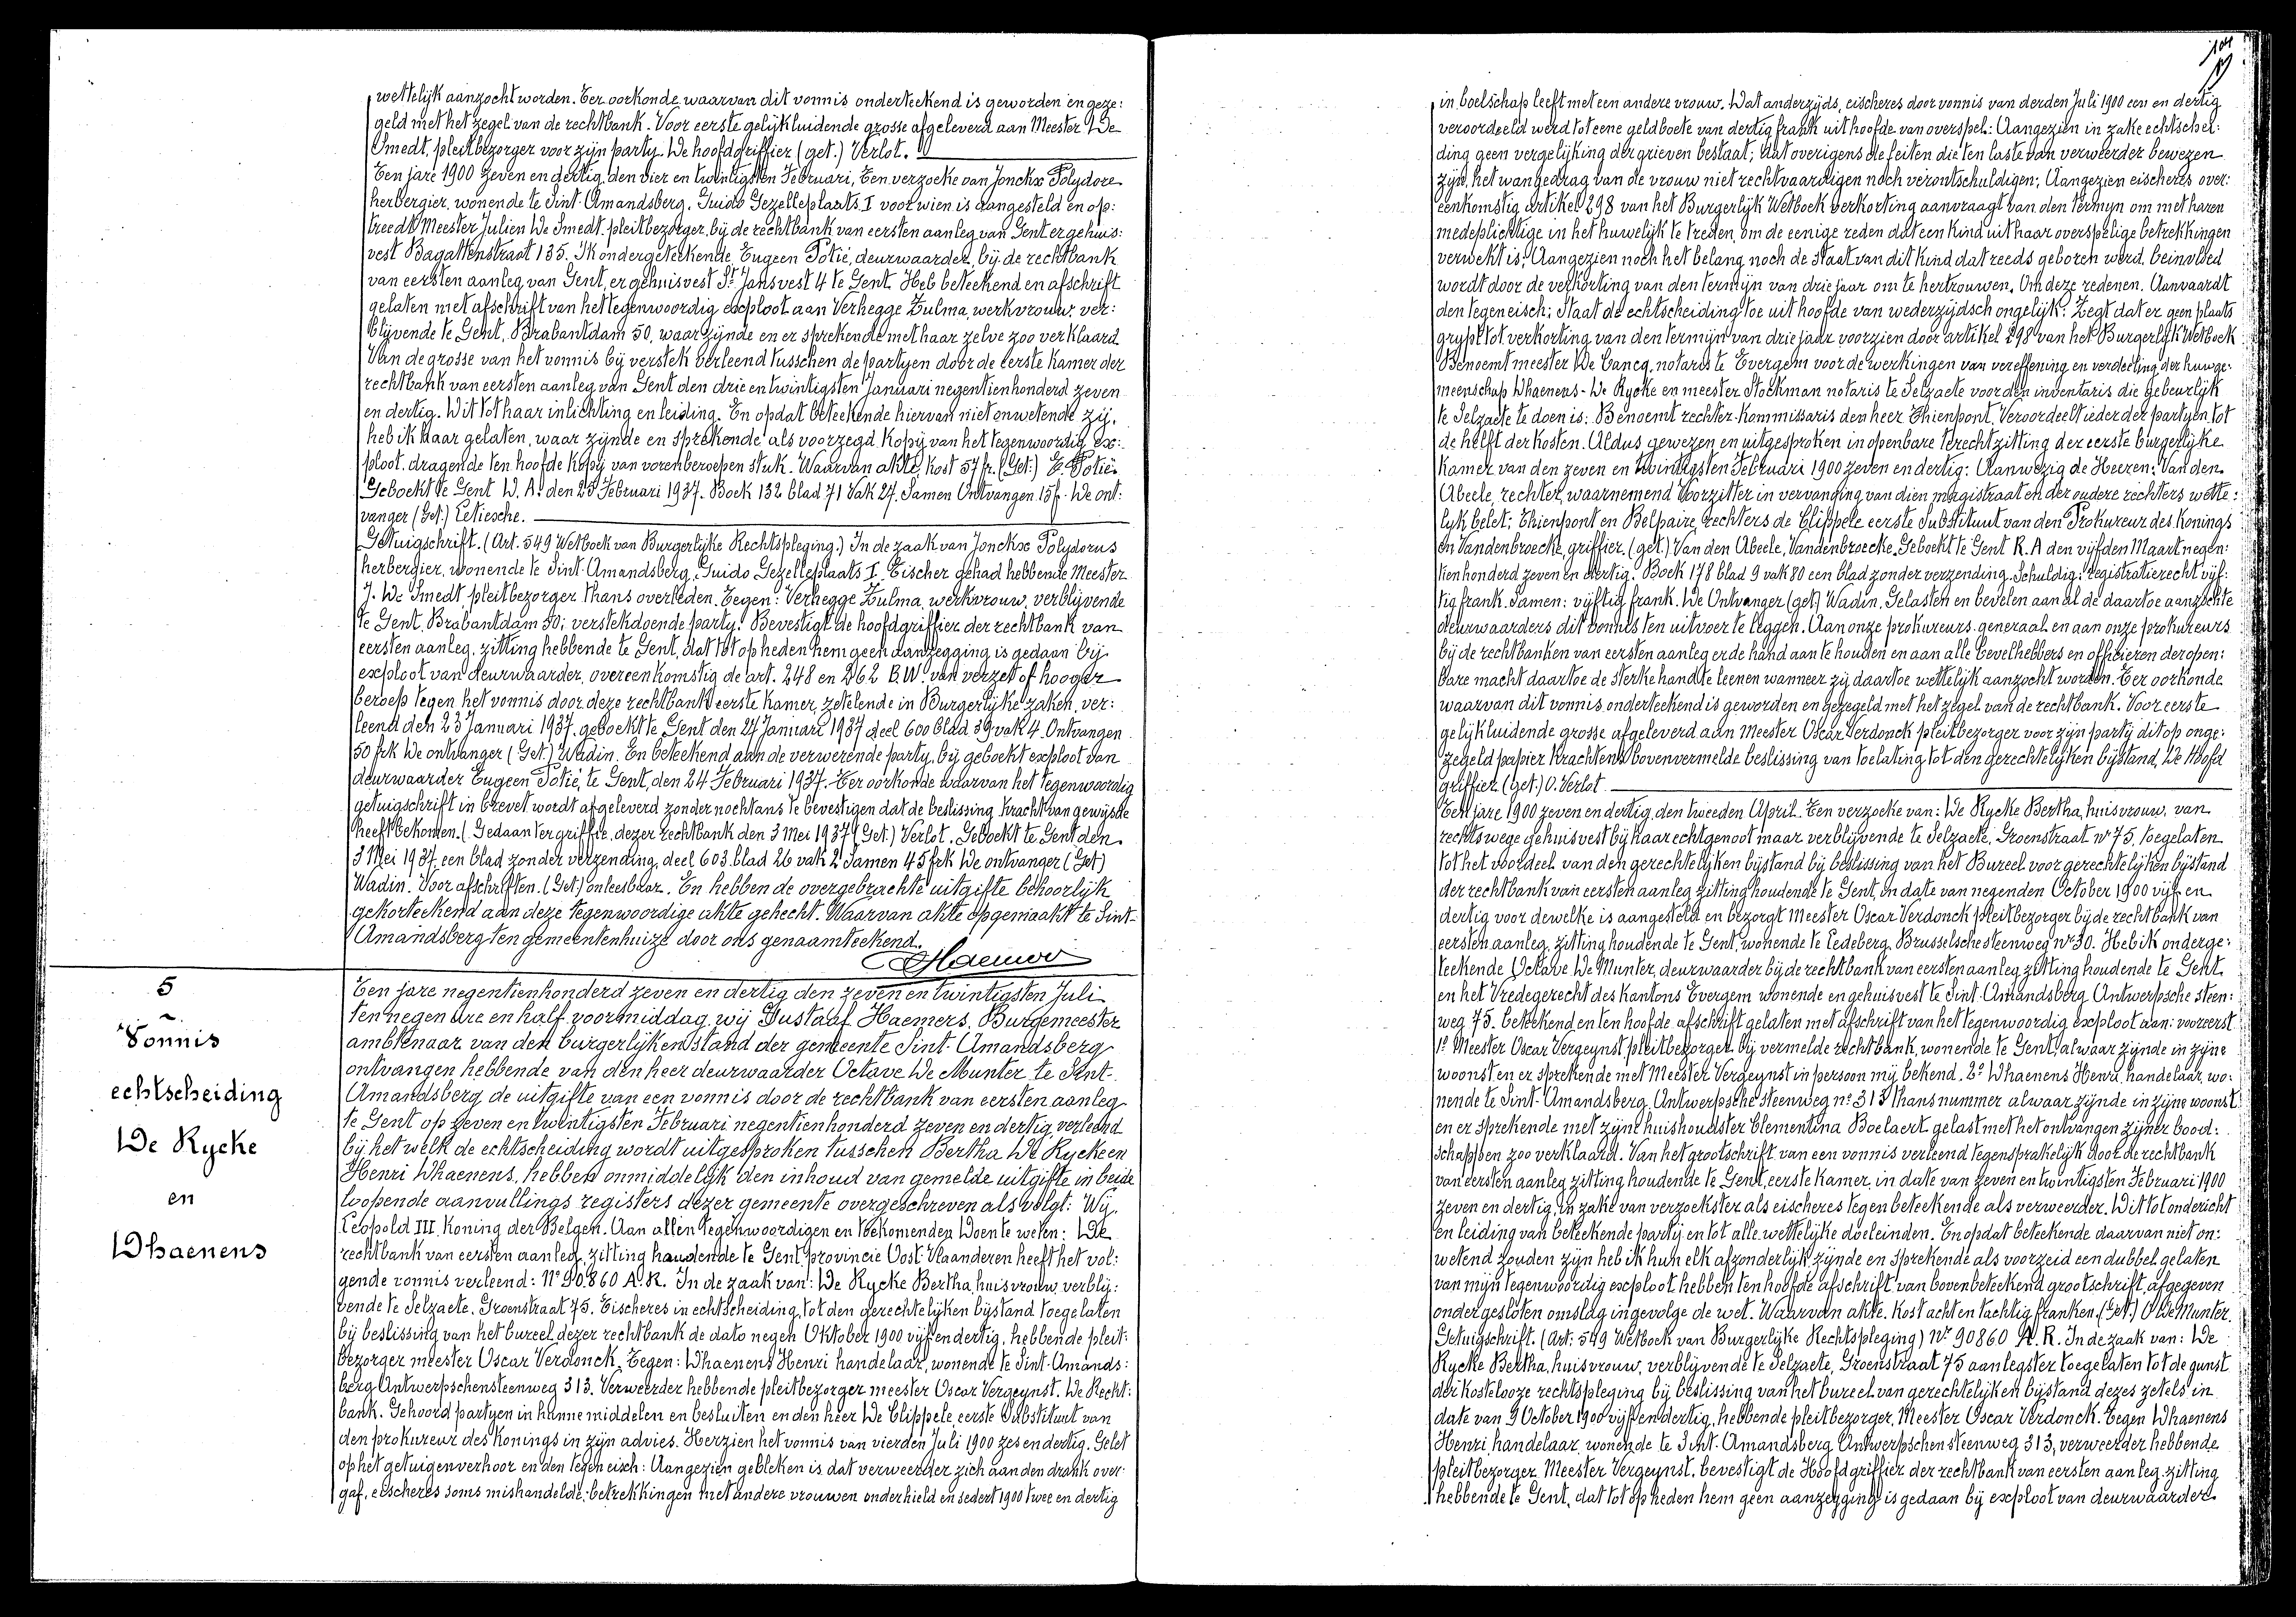 wettelijk aanzocht worden. Ter oorkonde waarvan dit vonnis onderteekend is geworden en geze:
geld met het zegel van de rechtbank. Voor eerste gelijkluidende grosse afgeleverd aan Meester De
Smedt, pleitbezorger voor zijn party. De hoofdgriffier (get.) Verlot.
Ten jare 1900 zeven en dertig, den vier en twintigsten Februari, Ten verzoeke van Jonckx Polydore
herbergier, wonende te Sint-Amandsberg, Guido Gezelleplaats I voor wien is aangesteld en op:
treedt Meester Julien De Smedt, pleitbezorger, bij de rechtbank van eersten aanleg van Gent er gehuis:
vest Bagattenstraat 135. Ik ondergeteekende Eugeen Potié, deurwaarder, bij de rechtbank
van eersten aanleg van Gent, er gehuisvest St Jansvest 4 te Gent. Heb beteekend en afschrift
gelaten met afschrift van het tegenwoordig exploot aan Verhegge Zulma, werkvrouw, ver:
blijvende te Gent, Brabantdam 50, waar zijnde en er sprekende met haar zelve zoo verklaard
Van de grosse van het vonnis bij verstek verleend tusschen de partyen door de eerste kamer der
rechtbank van eersten aanleg van Gent den drie en twintigsten Januari negentienhonderd zeven
en dertig. Dit tot haar inlichting en leiding. En opdat beteekende hiervan niet onwetende zij,
heb ik haar gelaten, waar zijnde en sprekende als voorzegd. Kopij van het tegenwoordig ex:
ploot, dragende ten hoofde kopij van vorenberoepen stuk. Waarvan akte, kost 57 fr. (Get:) E. Potié.
Geboekt te Gent D. A. den 25 Februari 1937. Boek 132 blad 71 Vak 27. Samen Ontvangen 15 f. De ont:
vanger (Get.) Letiesche.
Getuigschrift. (Art. 549 Wetboek van Burgerlijke Rechtspleging.) In de zaak van Jonckx Polydorus
herbergier, wonende te Sint-Amandsberg, Guido Gezelleplaats I. Eischer gehad hebbende Meester
J. De Smedt, pleitbezorger thans overleden. Tegen: Verhegge Zulma, werkvrouw, verblijvende
te Gent, Brabantdam 50; verstekdoende party. Bevestigt de hoofdgriffier der rechtbank van
eersten aanleg, zitting hebbende te Gent, dat tot op heden hem geen aanzegging is gedaan bij
exploot van deurwaarder, overeenkomstig de art. 248 en 262 B.W. van verzet of hooger
beroep tegen het vonnis door deze rechtbank eerste kamer, zetelende in Burgerlijke zaken, ver:
leend den 23 Januari 1937. geboekt te Gent den 27 Januari 1937 deel 600 blad 39 vak 4. Ontvangen
50 frk De ontvanger (Get.) Wadin. En beteekend aan de verwerende party, bij geboekt exploot van
deurwaarder Eugeen Potié, te Gent, den 24 Februari 1937. Ter oorkonde waarvan het tegenwoordig
getuigschrift in brevet wordt afgeleverd zonder nochtans te bevestigen dat de beslissing kracht van gewijsde
heeft bekomen. (Gedaan ter griffie, dezer rechtbank den 3 Mei 1937 (Get.) Verlot. Geboekt te Gent den
3 Mei 1937 een blad zonder verzending, deel 603 blad 26 vak 2 Samen 45 frk De ontvanger (Get)
Wadin. Voor afschriften. (Get) onleesbaar. En hebben de overgebrachte uitgifte behoorlijk
gekorteekend aan deze tegenwoordige akte gehecht. Waarvan akte opgemaakt te Sint-
Amandsberg ten gemeentenhuize door ons genaamteekend.
Haemers
5
Vonnis
echtscheiding
De Rycke
en
Dhaenens
Ten jare negentienhonderd zeven en dertig den zeven en twintigsten Juli
ten negen ure en half voormiddag, wij Gustaaf Haemers, Burgemeester
ambtenaar van den burgerlijken stand der gemeente Sint-Amandsberg
ontvangen hebbende van den heer deurwaarder Octave De Munter te Sint-
Amandsberg de uitgifte van een vonnis door de rechtbank van eersten aanleg
te Gent op zeven en twintigsten Februari negentienhonderd zeven en dertig, verleend
bij het welk de echtscheiding wordt uitgesproken tusschen Bertha De Rycke en
Henri Dhaenens, hebben onmiddelijk den inhoud van gemelde uitgifte in beide
loopende aanvullings registers dezer gemeente overgeschreven als volgt: Wij,
Leopold III Koning der Belgen. Aan allen tegenwoordigen en toekomenden Doen te weten: De
rechtbank van eersten aanleg, zitting houdende te Gent, provincie Oost-Vlaanderen heeft het vol:
gende vonnis verleend: N° 90.860 A.R. In de zaak van: De Rycke Bertha, huisvrouw, verblij:
vende te Selzaete, Groenstraat 75. Eischeres in echtscheiding, tot den gerechtelijken bijstand toegelaten
bij beslissing van het bureel dezer rechtbank de dato negen Oktober 1900 vijf en dertig, hebbende pleit:
bezorger meester Oscar Verdonck. Tegen: Dhaenens Henri handelaar, wonende te Sint-Amands:
berg Antwerpschensteenweg 313. Verweerder hebbende pleitbezorger meester Oscar Vergeynst. De Recht:
bank. Gehoord partyen in hunne middelen en besluiten en den heer De Clippele, eerste Substituut van
den prokureur des Konings in zijn advies. Herzien het vonnis van vierden Juli 1900 zes en dertig. Gelet
op het getuigenverhoor en den tegeneisch: Aangezien gebleken is dat verweerder zich aan den drank over
gaf, eischeres soms mishandelde, betrekkingen met andere vrouwen onderhield en sedert 1900 twee en dertig
in boelschap leeft met een andere vrouw. Dat anderzijds, eischeres door vonnis van derden Juli 1900 een en dertig
veroordeeld werd tot eene geldboete van dertig frank uit hoofde van overspel: Aangezien in zake echtschei:
ding geen vergelijking der grieven bestaat; dat overigens de feiten die ten laste van verweerder bewezen
zijn, het wangedrag van de vrouw niet rechtvaardigen noch verontschuldigen; Aangezien eischeres over:
eenkomstig artikel 298 van het Burgerlijk Wetboek verkorting aanvraagt van den termyn om met haren
medeplichtige in het huwelijk te treden, om de eenige reden dat een kind uit haar overspelige betrekkingen
verwekt is; Aangezien noch het belang noch de staat van dit kind dat reeds geboren werd, beïnvloed
wordt door de verkorting van den termijn van drie jaar om te hertrouwen. Om deze redenen. Aanvaardt
den tegeneisch; Staat de echtscheiding toe uit hoofde van wederzijdsch ongelijk; Zegt dat er geen plaats
grypt tot verkorting van den termyn van drie jaar voorzien door artikel 298 van het Burgerlijk Wetboek
Benoemt meester De Cancq, notaris te Evergem voor de werkingen van vereffening en verdeeling der huwge:
meenschap Dhaenens-De Rycke en meester Stockman notaris te Selzaete voor den inventaris die gebeurlijk
te Selzaete te doen is: Benoemt rechter-kommissaris den heer Thienpont, Veroordeelt ieder der partyen tot
de helft der kosten. Aldus gewezen en uitgesproken in openbare terechtzitting der eerste burgerlijke
kamer van den zeven en twintigsten Februari 1900 zeven en dertig: Aanwezig de Heeren: Van den
Abeele, rechter, waarnemend Voorzitter in vervanging van dien magistraat en der oudere rechters wette:
lyk belet; Thienpont en Belpaire, rechters de Clippele eerste Substituut van den Prokureur des Konings
en Vandenbroecke, griffier. (get.) Van den Abeele, Vandenbroecke. Geboekt te Gent R.A den vijfden Maart negen:
tienhonderd zeven en dertig. Boek 178 blad 9 vak 80 een blad zonder verzending. Schuldig: registratierecht vijf:
tig frank. Samen: vijftig frank. De Ontvanger (get) Wadin. Gelasten en bevelen aan al de daartoe aanzochte
deurwaarders dit vonnis ten uitvoer te leggen. Aan onze prokureurs-generaal en aan onze prokureurs
bij de rechtbanken van eersten aanleg er de hand aan te houden en aan alle bevelhebbers en officieren der open:
bare macht daartoe de sterke hand te leenen wanneer zij daartoe wettelijk aanzocht worden. Ter oorkonde
waarvan dit vonnis onderteekend is geworden en gezegeld met het zegel van de rechtbank. Voor eerste
gelijkluidende grosse afgeleverd aan Meester Oscar Verdonck pleitbezorger voor zijn party dit op onge:
zegeld papier krachtens bovenvermelde beslissing van toelating tot den gerechtelijken bijstand, De Hoofd
griffier (get.) O. Verlot
Ten jare 1900 zeven en dertig, den tweeden April. Ten verzoeke van: De Rycke Bertha, huisvrouw, van
rechtswege gehuisvest bij haar echtgenoot maar verblijvende te Selzaete, Groenstraat nr 75, toegelaten
tot het voordeel van den gerechtelijken bijstand bij beslissing van het Bureel voor gerechtelijken bijstand
der rechtbank van eersten aanleg zitting houdende te Gent, in date van negenden October 1900 vijf en
dertig voor dewelke is aangesteld en bezorgt Meester Oscar Verdonck pleitbezorger bij de rechtbank van
eersten aanleg, zitting houdende te Gent, wonende te Ledeberg, Brusselschesteenweg nr 30. Heb ik onderge:
teekende Octave De Munter, deurwaarder bij de rechtbank van eersten aanleg zitting houdende te Gent
en het Vredegerecht des kantons Evergem wonende en gehuisvest te Sint-Amandsberg Antwerpsche steen:
weg 75. beteekend en ten hoofde afschrift gelaten met afschrift van het tegenwoordig exploot aan: vooreerst
1° Meester Oscar Vergeynst pleitbezorger bij vermelde rechtbank, wonende te Gent, alwaar zijnde in zijne
woonst en er sprekende met Meester Vergeynst in persoon mij bekend. 2° Dhaenens Henri, handelaar, wo:
nende te Sint-Amandsberg, Antwerpsche steenweg n° 313 thans nummer alwaar zijnde in zijne woonst
en er sprekende met zijne huishoudster Clementina Boelaert gelast met het ontvangen zijner bood:
schappen zoo verklaard. Van het grootschrift van een vonnis verleend tegensprakelijk door de rechtbank
van eersten aanleg zitting houdende te Gent, eerste kamer, in date van zeven en twintigsten Februari 1900
zeven en dertig, in zake van verzoekster als eischeres tegen beteekende als verweerder. Dit tot onderricht
en leiding van beteekende party en tot alle wettelijke doeleinden. En opdat beteekende daarvan niet on:
wetend zouden zijn heb ik hun elk afzonderlijk, zijnde en sprekende als voorzeid een dubbel gelaten
van mijn tegenwoordig exploot, hebben ten hoofde afschrift van bovenbeteekend grootschrift, afgegeven
onder gesloten omslag ingevolge de wet. Waarvan akte. Kost acht en tachtig franken. (Get.) O De Munter.
Getuigschrift. (Art: 549 Wetboek van Burgerlijke Rechtspleging) Nr 90860 A.R. In de zaak van: De
Rycke Bertha, huisvrouw, verblijvende te Selzaete, Groenstraat 75 aanlegster toegelaten tot de gunst
der kostelooze rechtspleging bij beslissing van het bureel van gerechtelijken bijstand dezes zetels in
date van 9 October 1900 vijf en dertig, hebbende pleitbezorger, Meester Oscar Verdonck. Tegen Dhaenens
Henri, handelaar, wonende te Sint-Amandsberg, Antwerpschen steenweg 313, verweerder hebbende
pleitbezorger Meester Vergeynst, bevestigt de Hoofdgriffier der rechtbank van eersten aanleg, zitting
hebbende te Gent, dat tot op heden hem geen aanzegging is gedaan bij exploot van deurwaarder